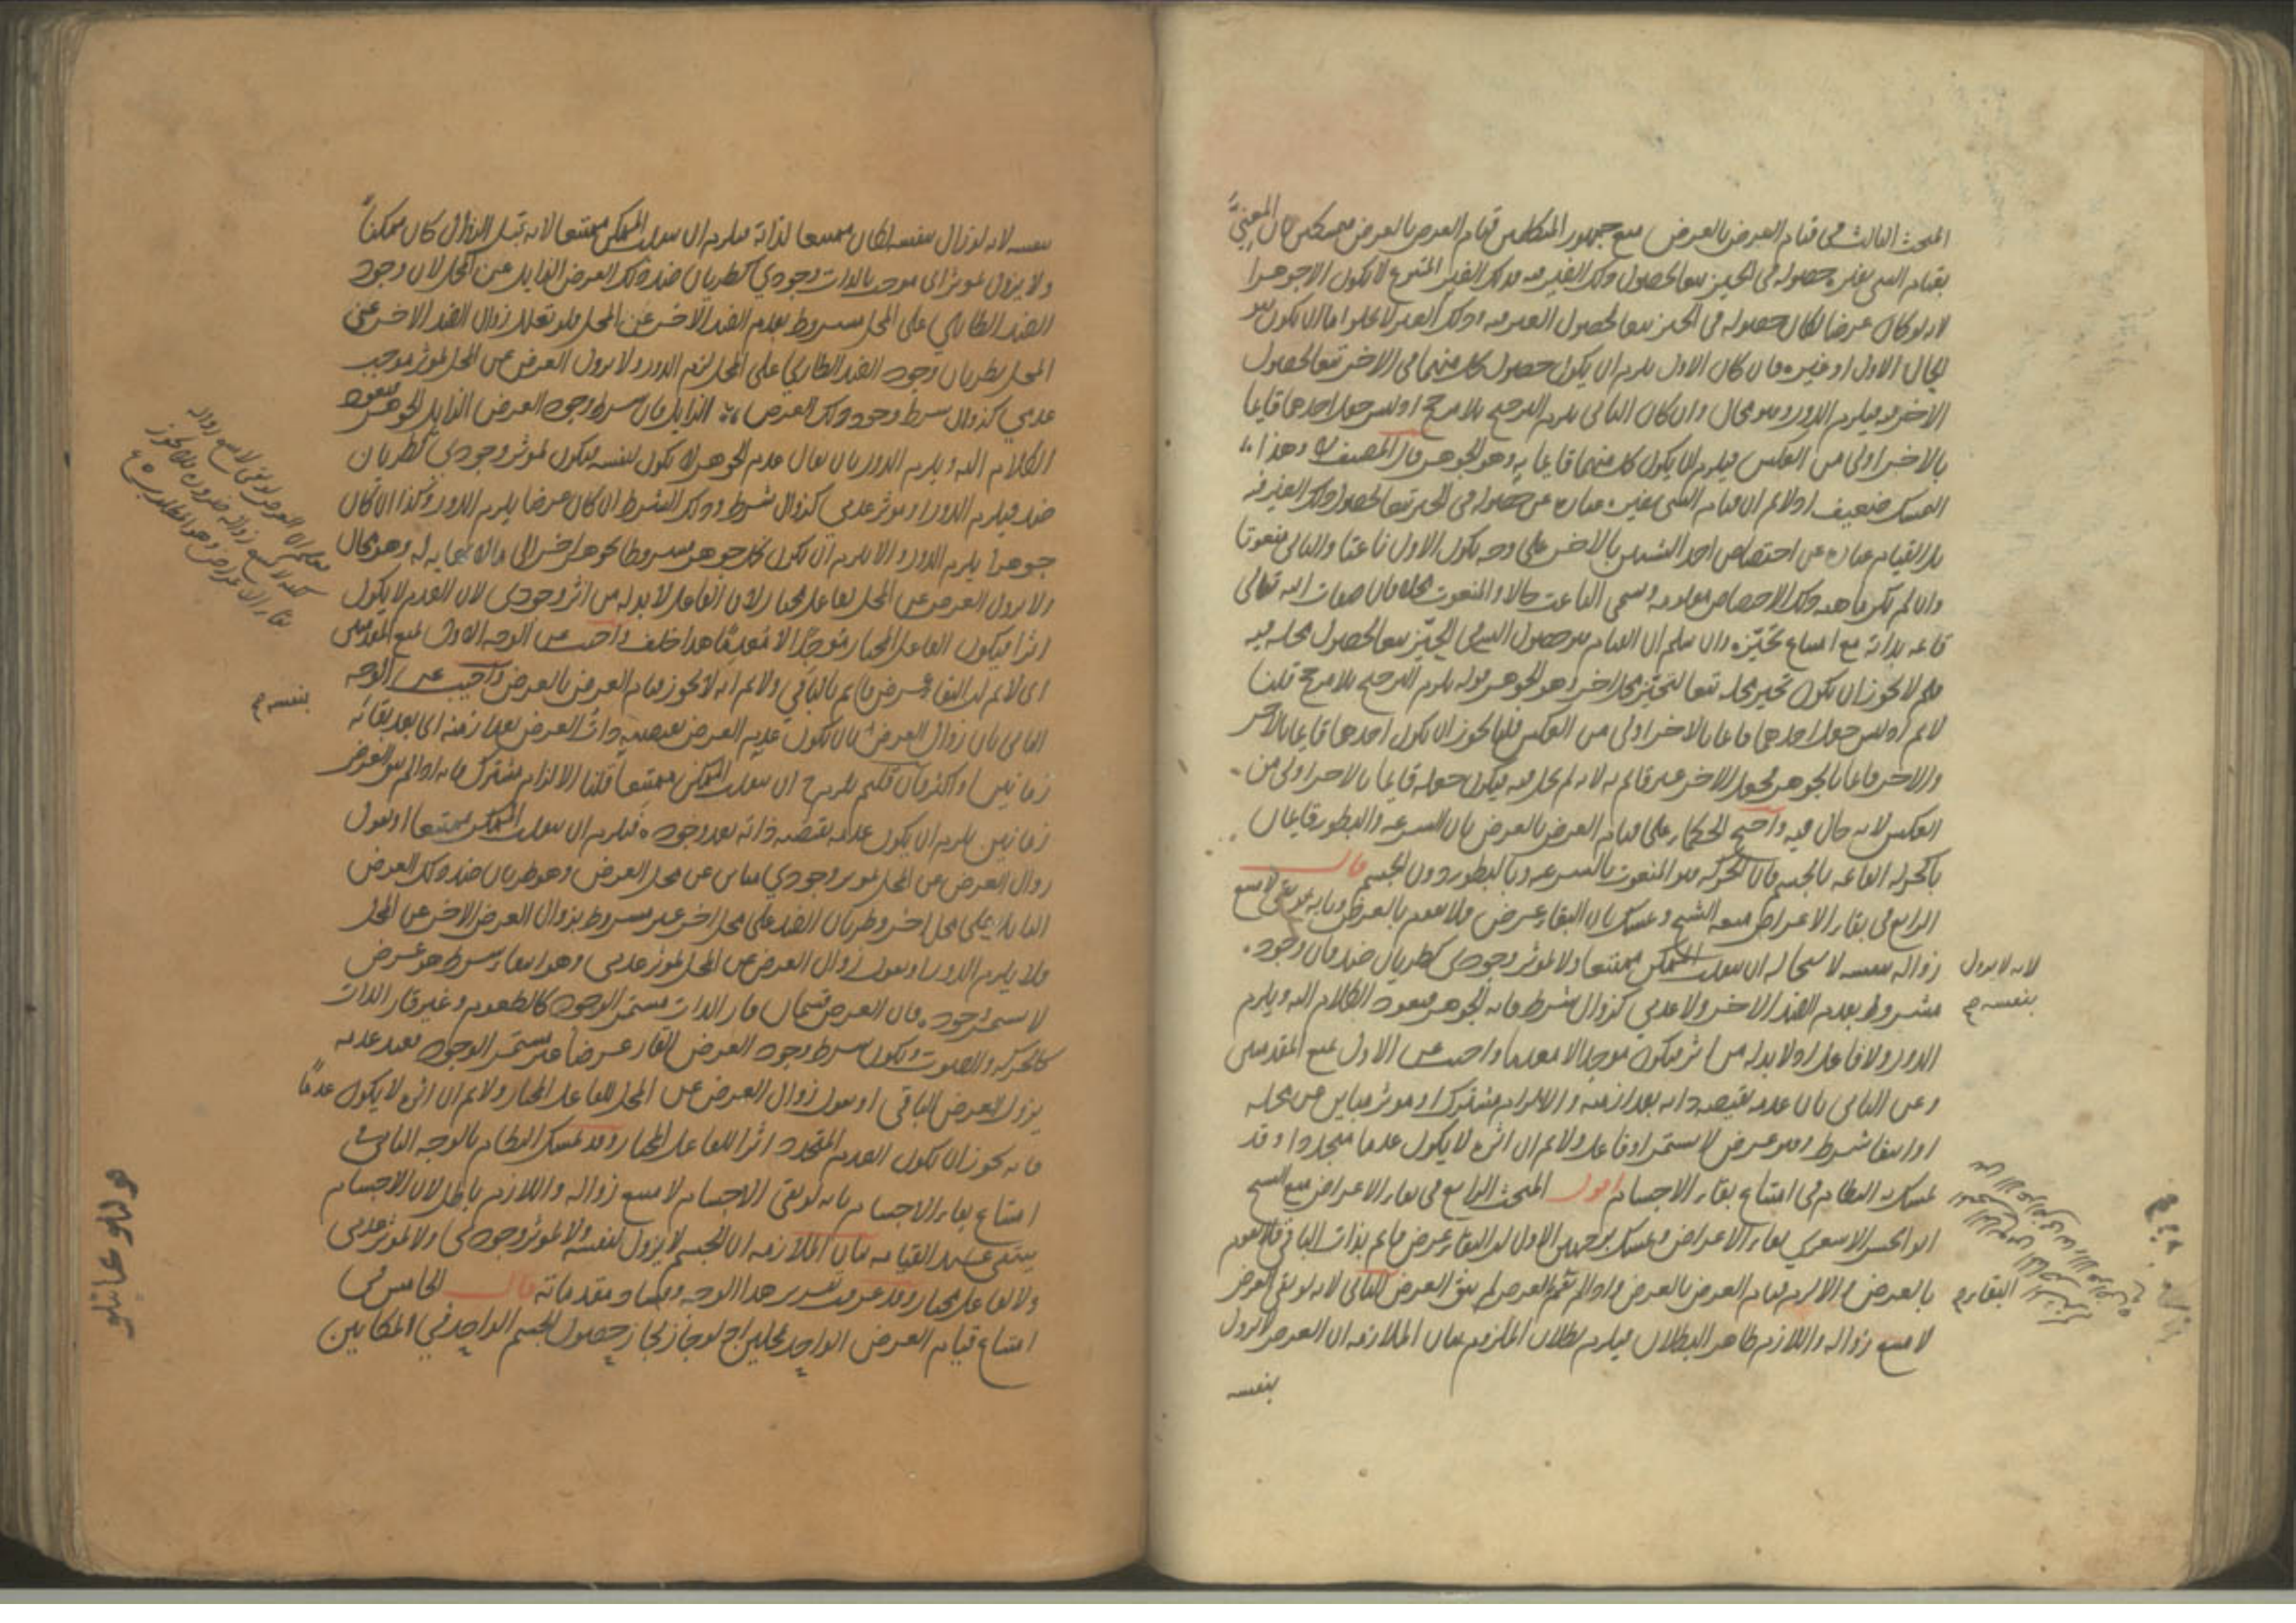 المبحث الثالث في قيام العرض بالعرض منع جمهور المتكلمين قيام العرض بالعرض متمسكين بان المعني
بقيام الشي بغيره حصوله في الحيز تبعا لحصول ذلك الغير فيه وذلك الغير المتبوع لا يكون الا جوهرا
لانه لو كان عرضا لكان حصوله في الحيز تبعا لحصول الغير فيه وذلك الغير لا يخلو اما ان يكون هو
الحال الاول او غيره فان كان الاول يلزم ان يكون حصول كل منهما في الاخر تبعا لحصول
الاخر فيه فيلزم الدور وهو محال وان كان الثاني يلزم الترجيح بلا مرجح اذ ليس جعل احدهما قايما
بالاخر اولى من العكس فيلزم ان يكون كل منهما قايما به وهو الجوهر قال المصنف وهذا
التمسك ضعيف اذ لا نم ان قيام الشي بغيره عبارة عن حصوله في الحيز تبعا لحصول ذلك الغير فيه
بل القيام عبارة عن اختصاص احد الشيئين بالاخر على وجه يكون الاول ناعتا والثاني منعوتا
وان لم تكن ماهية ذلك الاختصاص معلومة ويسمى الناعت حالا والمنعوت محلا فان صفات الله تعالى
قائمة بذاته مع امتناع تحيزه وان سلم ان القيام هو حصول الشي في الحيز تبعا لحصول محله فيه
فلم لا يجوز ان يكون تحيز محله تبعا لتحيز محل اخر وهو الجوهر قوله يلزم الترجيح بلا مرجح قلنا
لا نم اذ ليس جعل احدهما قايما بالاخر اولى من العكس فلما يجوز ان يكون احدهما قايما بالاخر
والاخر قايما بالجوهر فجعل الاخر غير قائم به لانه لم يحل فيه فيكون جعله قايما بالاخر اولى من
العكس لانه حال فيه واحتج الحكماء على قيام العرض بالعرض بان السرعة والبطو قايمان
بالحركة القائمة بالجسم فان الحركة هو المنعوت بالسرعة وبالبطو دون الجسم قال
الرابع في بقاء الاعراض منعه الشيخ وتمسك بان البقاء عرض فلا يقوم بالعرض وبانه لو بقي لامتنع
زواله بنفسه لاستحالة ان ينقلب الممكن ممتنعا ولا لمؤثر وجودي كطريان ضد فان وجوده
لانه لا يزول
مشروط بعدم الضد الاخر ولا عدمي كزوال شرط فانه الجوهر فيعود الكلام اليه ويلزم
بنفسه
الدور ولا فاعل اذ لا بد له من اثر فيكون موجدا لا معدما واجيب عن الاول بمنع المقدمتين
وعن الثاني بان عدمه تقتضيه ذاته بعد ازمنة والالزام مشترك او مؤثر مباين عن محله
او انتفاء شرط وهو عرض لا يستمر او فاعل ولا نم ان اثره لا يكون عدما متجددا وقد
تمسك به النظام في امتناع بقاء الاجسام اقول المبحث الرابع في بقاء الاعراض منع الشيخ
ابو الحسن الاشعري بقاء الاعراض وتمسك بوجهين الاول ان البقاء عرض قائم بذات الباقي فلا يقوم
البقاء
بالعرض والا لزم قيام العرض بالعرض واذا لم يقم بالعرض لم يبق العرض الثاني لانه لو بقي العرض
لامتنع زواله واللازم ظاهر البطلان فيلزم بطلان الملزوم بيان الملازمة ان العرض لا يزول
بنفسه
بنفسه لانه لو زال بنفسه لكان ممتنعا لذاته فيلزم ان ينقلب الممكن ممتنعا لانه قبل الزوال كان ممكنا
ولا يزول لمؤثر اي موجب بالذات وجودي كطريان ضد ذلك العرض الزايل عن المحل لان وجود
الضد الطاري على المحل مشروط بعدم الضد الاخر عن المحل فلو تعلل زوال الضد الاخر عن
المحل بطريان وجود الضد الطاري على المحل لزم الدور ولا يزول العرض عن المحل لمؤثر موجب
عدمي كزوال شرط وجود ذلك العرض الزايل فان شرط وجود العرض الزايل الجوهر فيعود
الكلام اليه ويلزم الدور بان يقال عدم الجوهر لا يكون لنفسه فيكون لمؤثر وجودي كطريان
ضد فيلزم الدور او مؤثر عدمي كزوال شرط وذلك الشرط ان كان عرضا يلزم الدور وكذا ان كان
جوهرا يلزم الدور والا يلزم ان يكون كل جوهر مشروطا بجوهر اخر الى ما لا نهاية له وهو محال
ولا يزول العرض عن المحل بفاعل مختار لان الفاعل لا بد له من اثر وجودي لان العدم لا يكون
اثرا فيكون الفاعل المختار موجدا لا معدما هذا خلف واجيب عن الوجه الاول بمنع المقدمتين
اي لا نم ان البقاء عرض قائم بالباقي ولا نم انه لا يجوز قيام العرض بالعرض واجيب عن الوجه
بنفسه
الثاني بان زوال العرض بان يكون عدم العرض تقتضيه ذات العرض بعد ازمنة اي بعد بقائه
زمانين او اكثر فان قلتم يلزم ح ان ينقلب الممكن ممتنعا قلنا الالزام مشترك فانه اذا لم يبق العرض
زمانين يلزم ان يكون عدمه تقتضيه ذاته بعد وجوده فيلزم ان ينقلب الممكن ممتنعا او نقول
زوال العرض عن المحل لمؤثر وجودي مباين عن محل العرض وهو طريان ضد ذلك العرض
الزايل على محل اخر وطريان الضد على محل اخر غير مشروط بزوال العرض الاخر عن المحل
فلا يلزم الدور او نقول زوال العرض عن المحل لمؤثر عدمي وهو انتفاء شرط هو عرض
لا يستمر وجوده فان العرض قسمان قار الذات مستمر الوجود كالطعوم وغير قار الذات
كالحركة والصوت ويكون شرط وجود العرض القار عرضا غير مستمر الوجود فعند عدمه
يزول العرض الباقي او نقول زوال العرض عن المحل للفاعل المختار ولا نم ان اثره لا يكون عدما
فانه يجوز ان يكون العدم المتجدد اثرا للفاعل المختار وقد تمسك النظام بالوجه الثاني في
امتناع بقاء الاجسام بانه لو بقي الاجسام لامتنع زواله واللازم باطل لان الاجسام
ينتفي عند القيامة بيان الملازمة ان الجسم لا يزول لنفسه ولا لمؤثر وجودي ولا لمؤثر عدمي
ولا لفاعل مختار وقد عرفت تقرير هذا الوجه وفساد مقدماته قال الخامس في
امتناع قيام العرض الواحد بمحلين اذ لو جاز لجاز حصول الجسم الواحد في المكانين